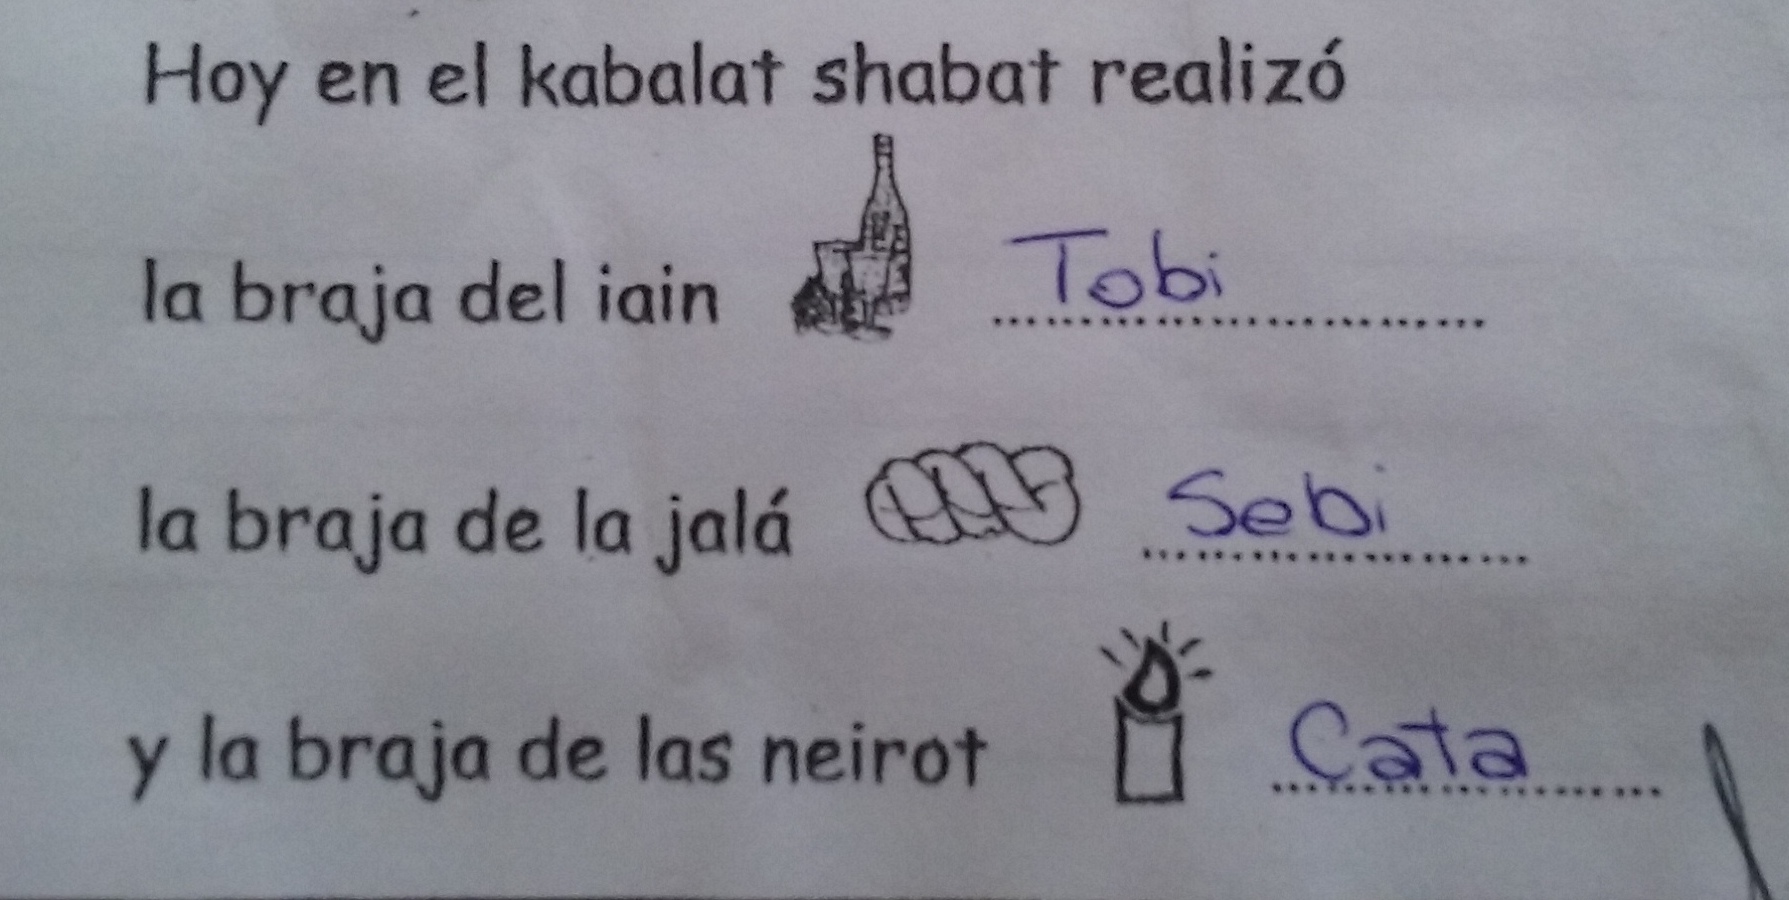 Hoy en el kabalat shabat realizó
la braja del iain Tobi
la braja de la jalá Sebi
y la braja de las neirot Cata